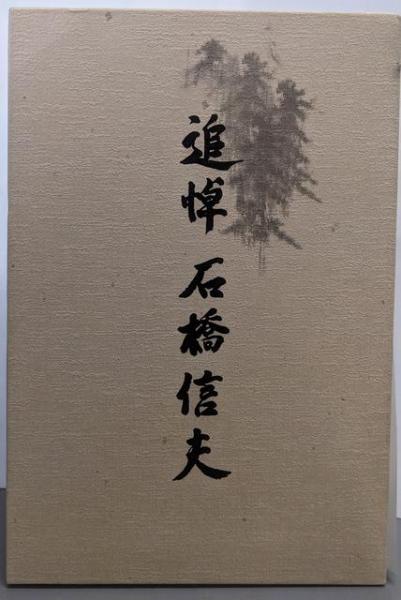 追悼 石橋信夫